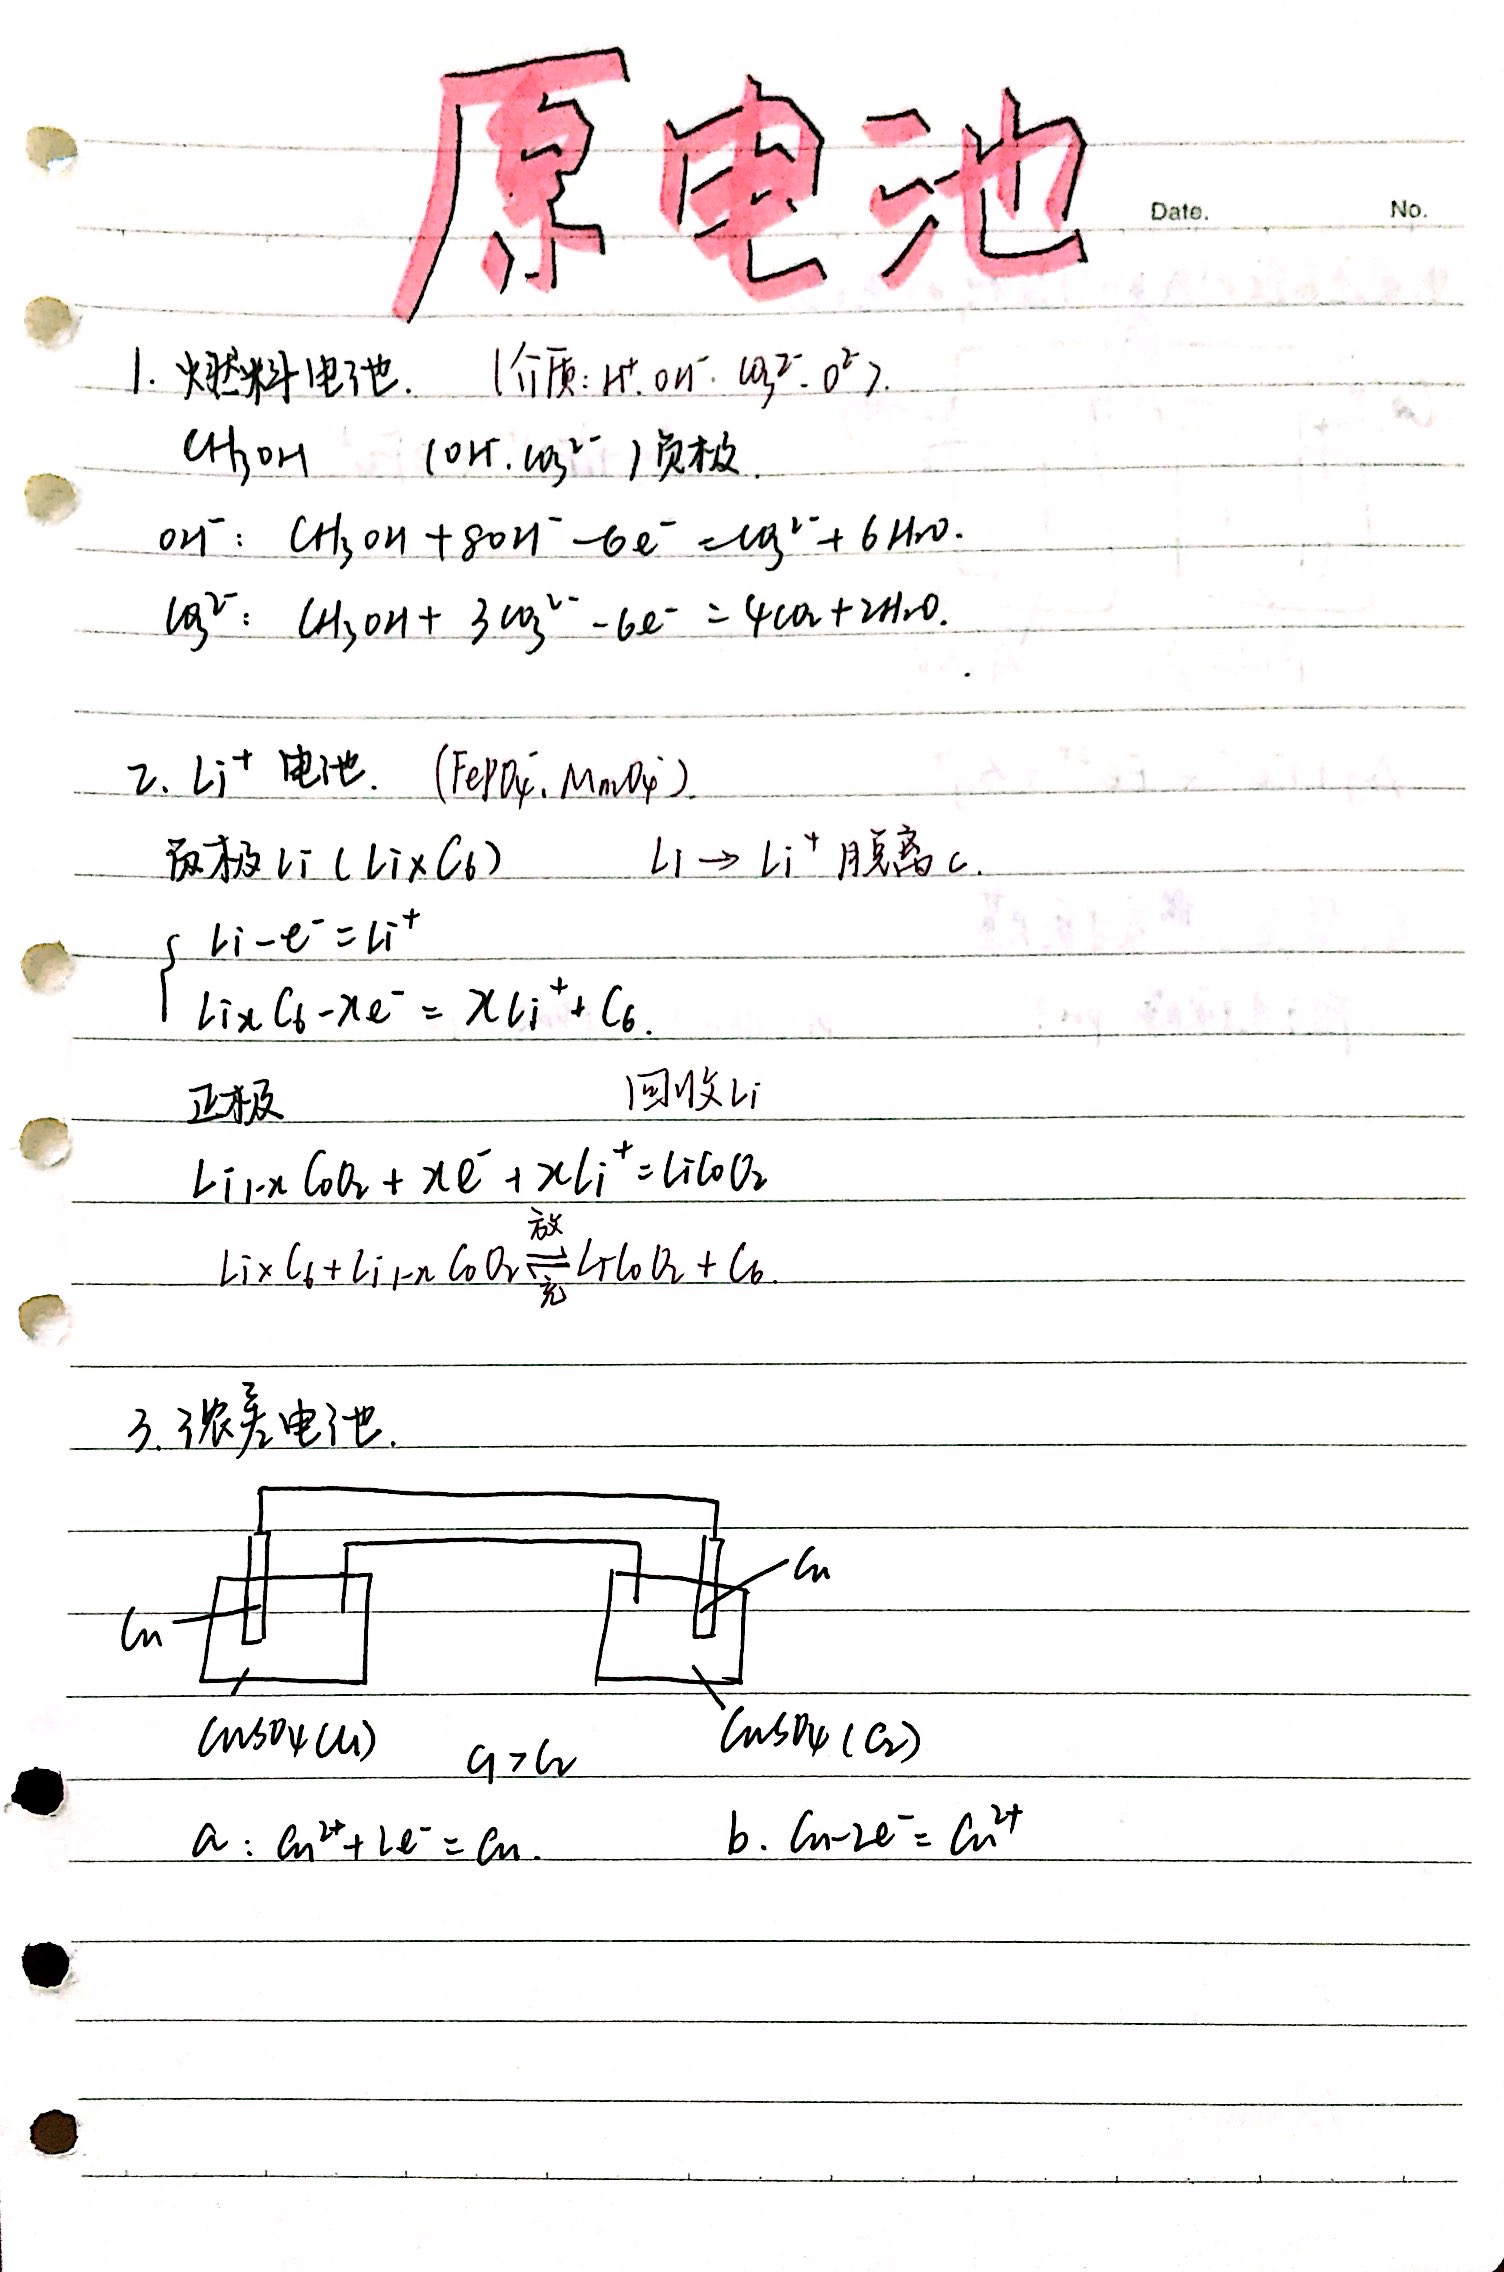 原电池
Date. No.
1. 燃料电池. (介质: H⁺. OH⁻. CO₃²⁻. O²⁻).
CH₃OH (OH⁻. CO₃²⁻) 负极.
OH⁻: CH₃OH + 8OH⁻ - 6e⁻ = CO₃²⁻ + 6H₂O.
CO₃²⁻: CH₃OH + 3CO₃²⁻ - 6e⁻ = 4CO₂ + 2H₂O.
2. Li⁺ 电池. (FePO₄⁻. MnO₄⁻).
负极 Li (LixC₆) Li → Li⁺ 脱离 C.
Li - e⁻ = Li⁺
LixC₆ - xe⁻ = xLi⁺ + C₆.
正极 回收Li
Li₁₋ₓCoO₂ + xe⁻ + xLi⁺ = LiCoO₂
放
LixC₆ + Li₁₋ₓCoO₂ ⇌ LiCoO₂ + C₆.
充
3. 浓差电池.
Cu
Cu
CuSO₄(C₁) CuSO₄(C₂)
C₁ > C₂
a: Cu²⁺ + 2e⁻ = Cu. b. Cu - 2e⁻ = Cu²⁺